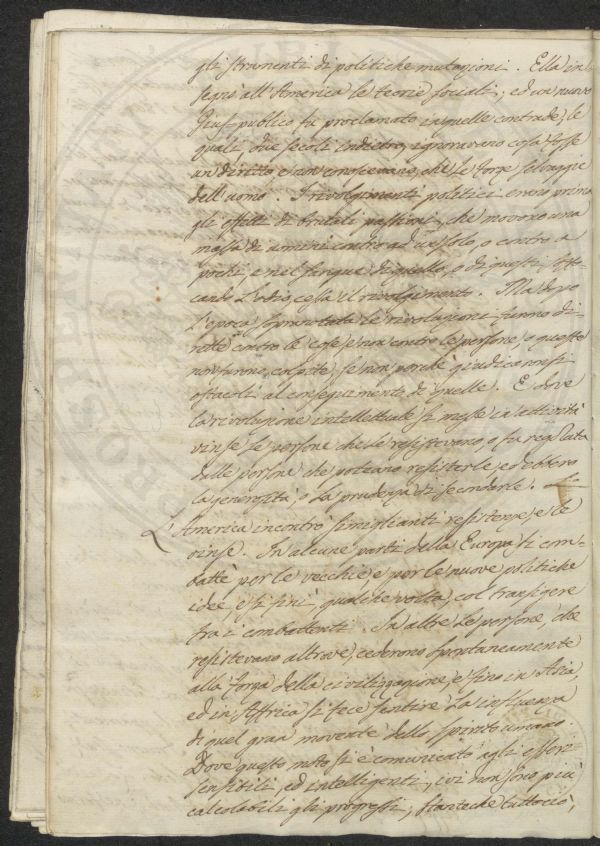 gli strumenti di politiche mutazioni. Ella in-
segnò all'America le teorie sociali; ed un nuovo
Jus-publico fu proclamato in quelle contrade, le
quali due secoli indietro, ignoravano cosa fosse
un diritto e non conoscevano, che le forze selvaggie
dell'uomo. I rivolgimenti politici erano prima
gli effetti di brutali passioni, che movono una
massa di uomini contro ad un solo, o contro a
pochi, e nel sangue di quello, o di questi, sfo-
cando l'odio, cessa il rivolgimento. Ma dopo
l'epoca le rivoluzioni furono di-
rette contro le cose, e non contro le persone, o queste
non furono colpite, se non perchè giudicate
ostacoli al conseguimento di quelle. E dove
la rivoluzione intellettuale si messe in attività
vinse le persone che le resistevano, o fu regolata
dalle persone che poteano resisterle, ed ebbero
la generosità, o la prudenza di secondarle.
L'America incontrò simiglianti resistenze, e le
vinse. In alcune parti della Europa si com-
battè per le vecchie, e per le nuove politiche
idee, e si finì qualche volta, col transigere
fra i combattenti. In altre le persone che
resistevano altrove, cederono spontaneamente
alla forza della civilizzazione, e fino in Asia,
ed in Affrica si fece sentire la influenza
di quel gran movente dello spirito umano.
Dove questo moto si è comunicato agli esseri
sensibili, ed intelligenti, ivi non sono più
calcolabili gli progressi, stanteche tuttociò,